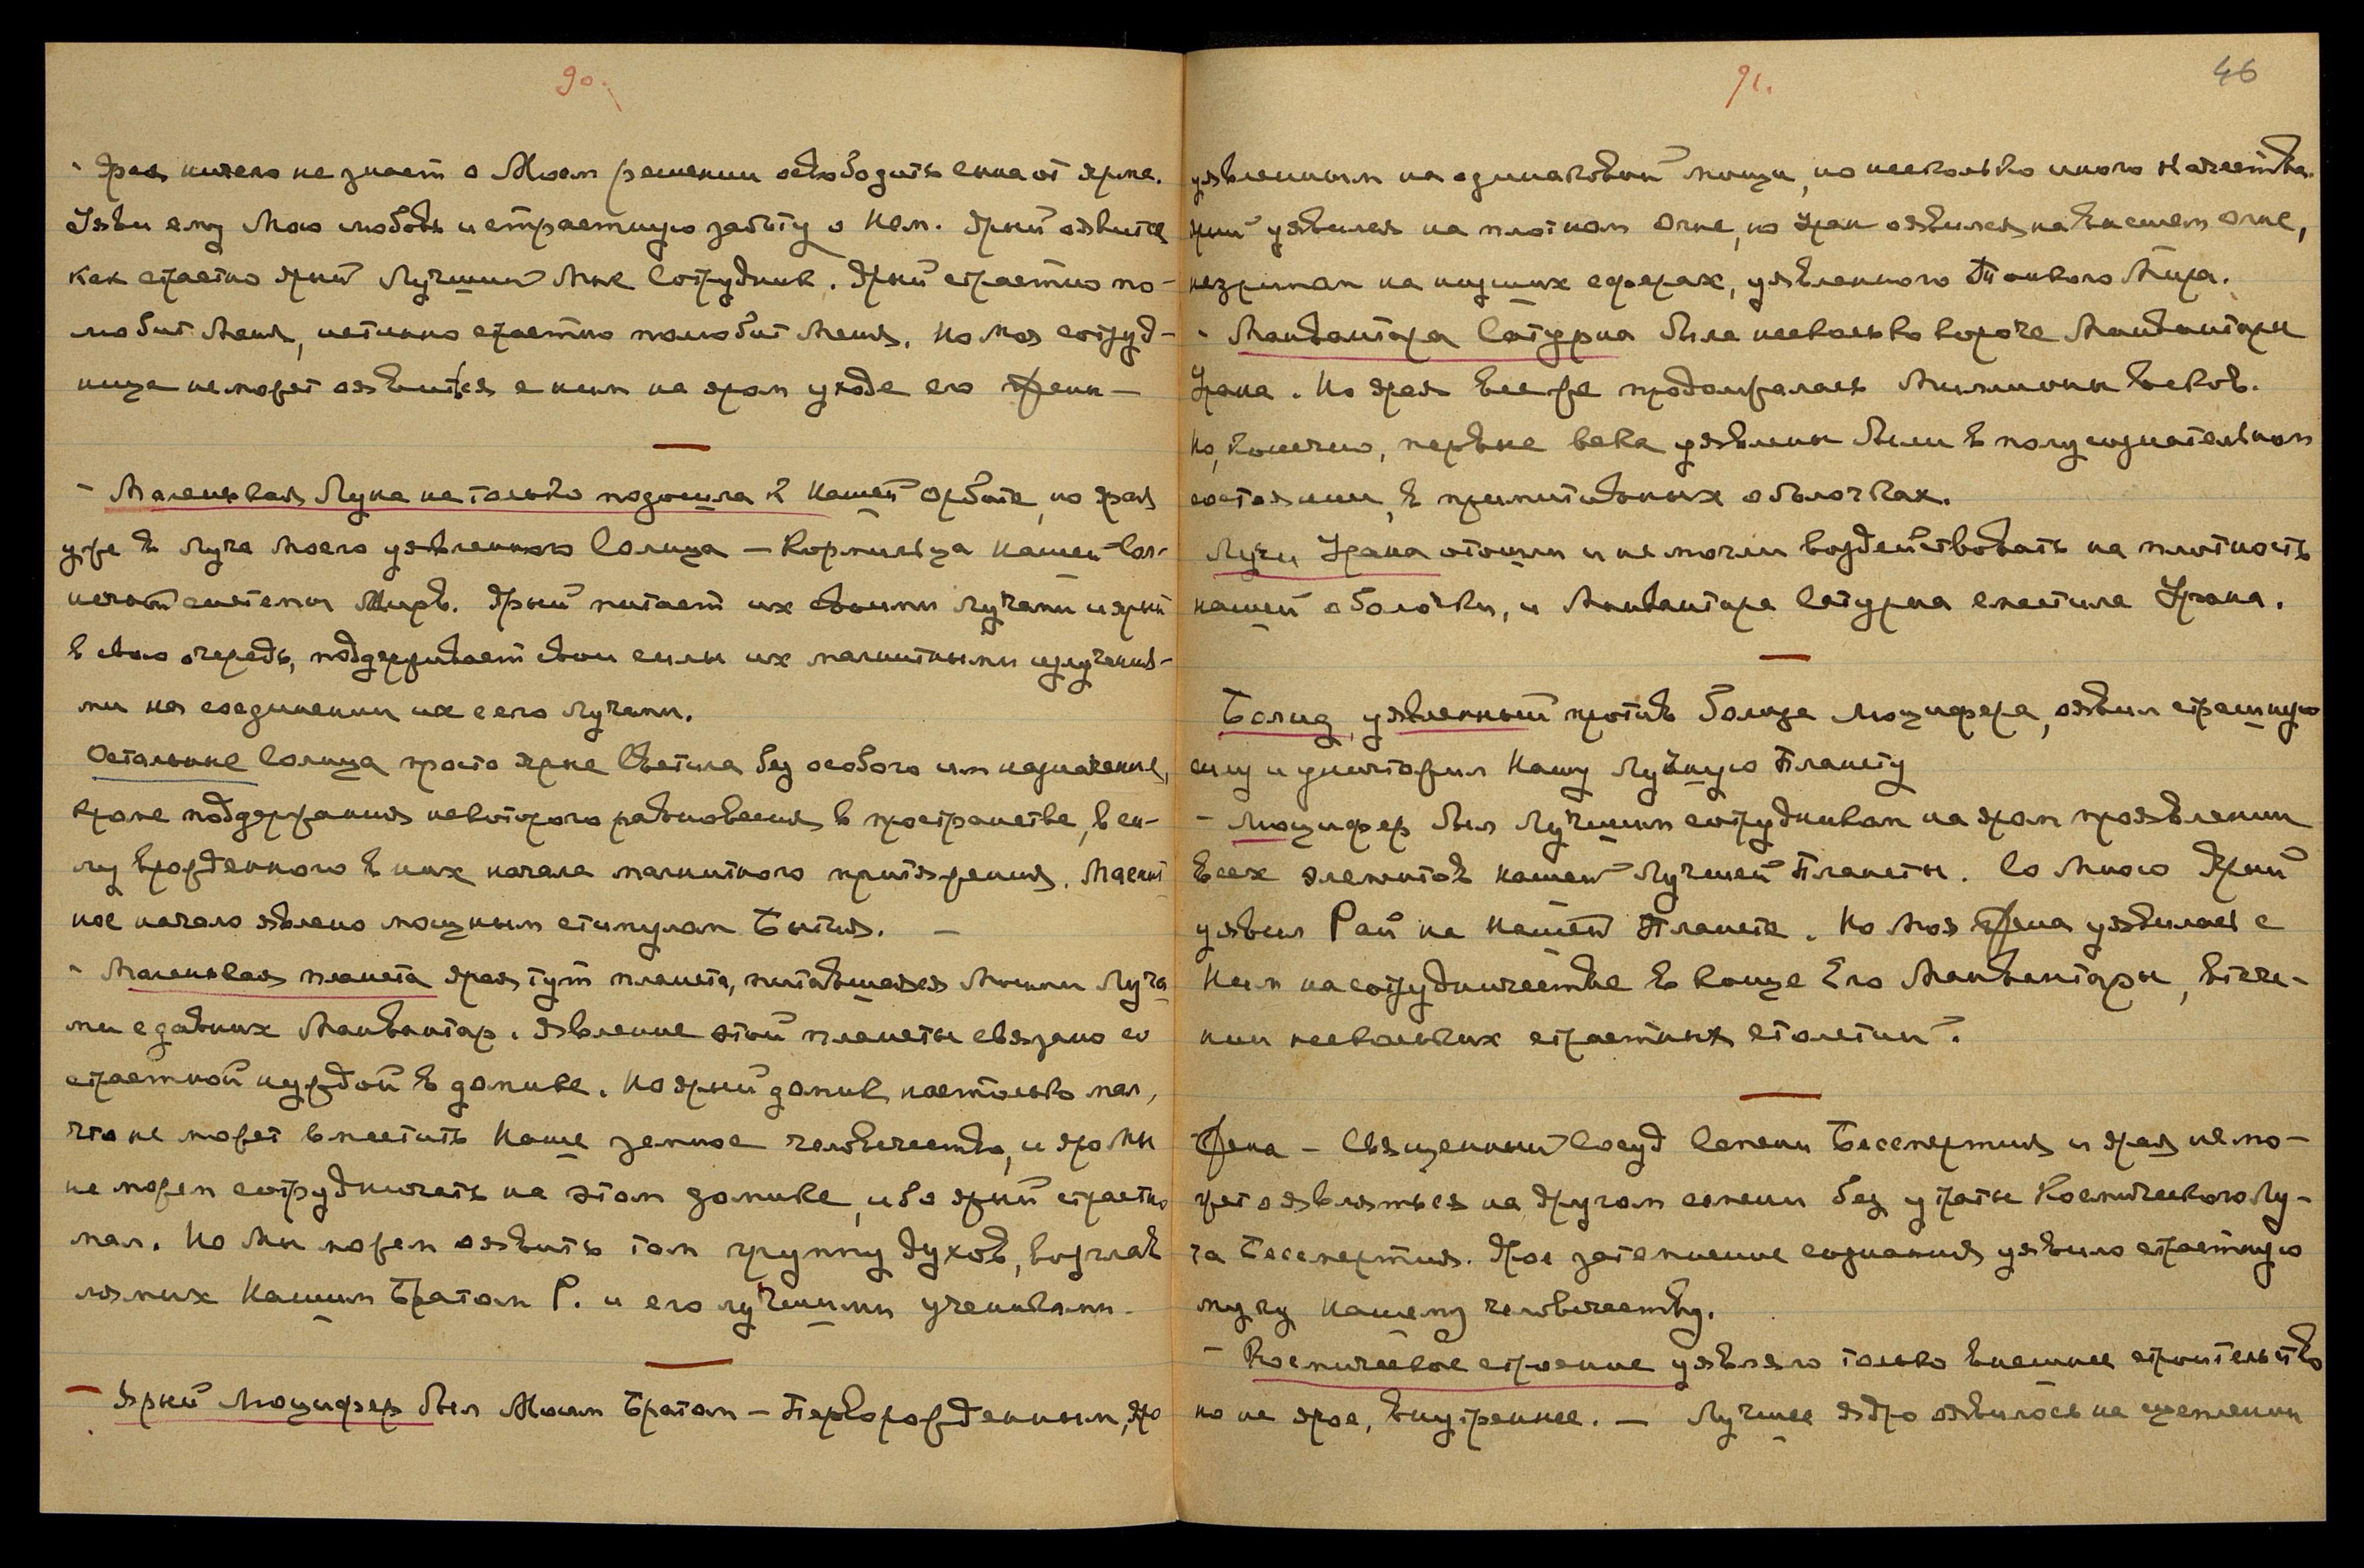 90.
- Ярая ничего не знает о Моем решении освободить сына от ярма.
Уяви ему Мою любовь и страстную заботу о нем. Ярый оявится
как страстно ярый Лучший Мне Сотрудник. Ярый страстно по-
любит Меня, истинно страстно полюбит Меня. Но Моя сотруд-
ница не может оявиться с ним на яром уходе его жены —
- Маленькая Луна не только подошла к нашей орбите, но ярая
уже в Луче Моего уявленного Солнца — Кормильца нашей Сол-
нечной системы Миров. Ярый питает их своими Лучами и ярый
в свою очередь, поддерживает свои силы их магнитными излучения-
ми на соединении их с его Лучами.
Остальные Солнца просто ярые Светила без особого им назначения,
кроме поддержания некоторого равновесия в пространстве, в си-
лу врожденного в них начала магнитного притяжения. Магнит
ное начало явлено мощным стимулом Бытия. —
- Маленькая планета ярая тут планета, питавшаяся Моими Луча
ми с давних Манвантар. Явление этой планеты связано со
страстной нуждой в домике. Но ярый домик настолько мал,
что не может вместить Наше земное человечество, и яро Мы
не можем сотрудничать на этом домике, ибо ярый страстно
мал. Но Мы можем оявить там группу духов, возглав
ляемых Нашим Братом Р. и его лучшими учениками.
- Ярый Люцифер был Моим Братом — Перворожденным, яро
91.
46
уявленным на одинаковой мощи, но несколько иного качества.
Ярый уявился на плотном Огне, но Уран оявился на высшем Огне,
незримом на низших сферах, уявленного Тонкого Мира.
- Манвантара Сатурна была несколько короче Манвантары
Урана. Но ярая все же продолжалась Миллионы веков.
Но, конечно, первые века уявлены были в полусознательном
состоянии, в примитивных оболочках.
Лучи Урана отошли и не могли воздействовать на плотность
нашей оболочки, и Манвантара Сатурна сместила Урана.
Болид, уявленный против Болида Люцифера, оявил страшную
силу и уничтожил Нашу Лучшую Планету
- Люцифер был Лучшим сотрудником на яром проявлении
всех элементов нашей Лучшей Планеты. Со Мною Ярый
уявил Рай на нашей Планете. Но Моя Жена уявилась с
Ним на сотрудничестве в конце Его Манвантары, в тече-
нии нескольких страстных столетий.
Жена — Священный Сосуд Семени Бессмертия и ярая не мо-
жет оявляться на другом семени без утраты Космического Лу-
ча Бессмертия. Ярое затемнение сознания уявило страстную
муку нашему человечеству.
- Космическое строение уявляло только внешнее строительство
но не ярое, внутреннее. — Лучшее ядро оявилось на сцеплении